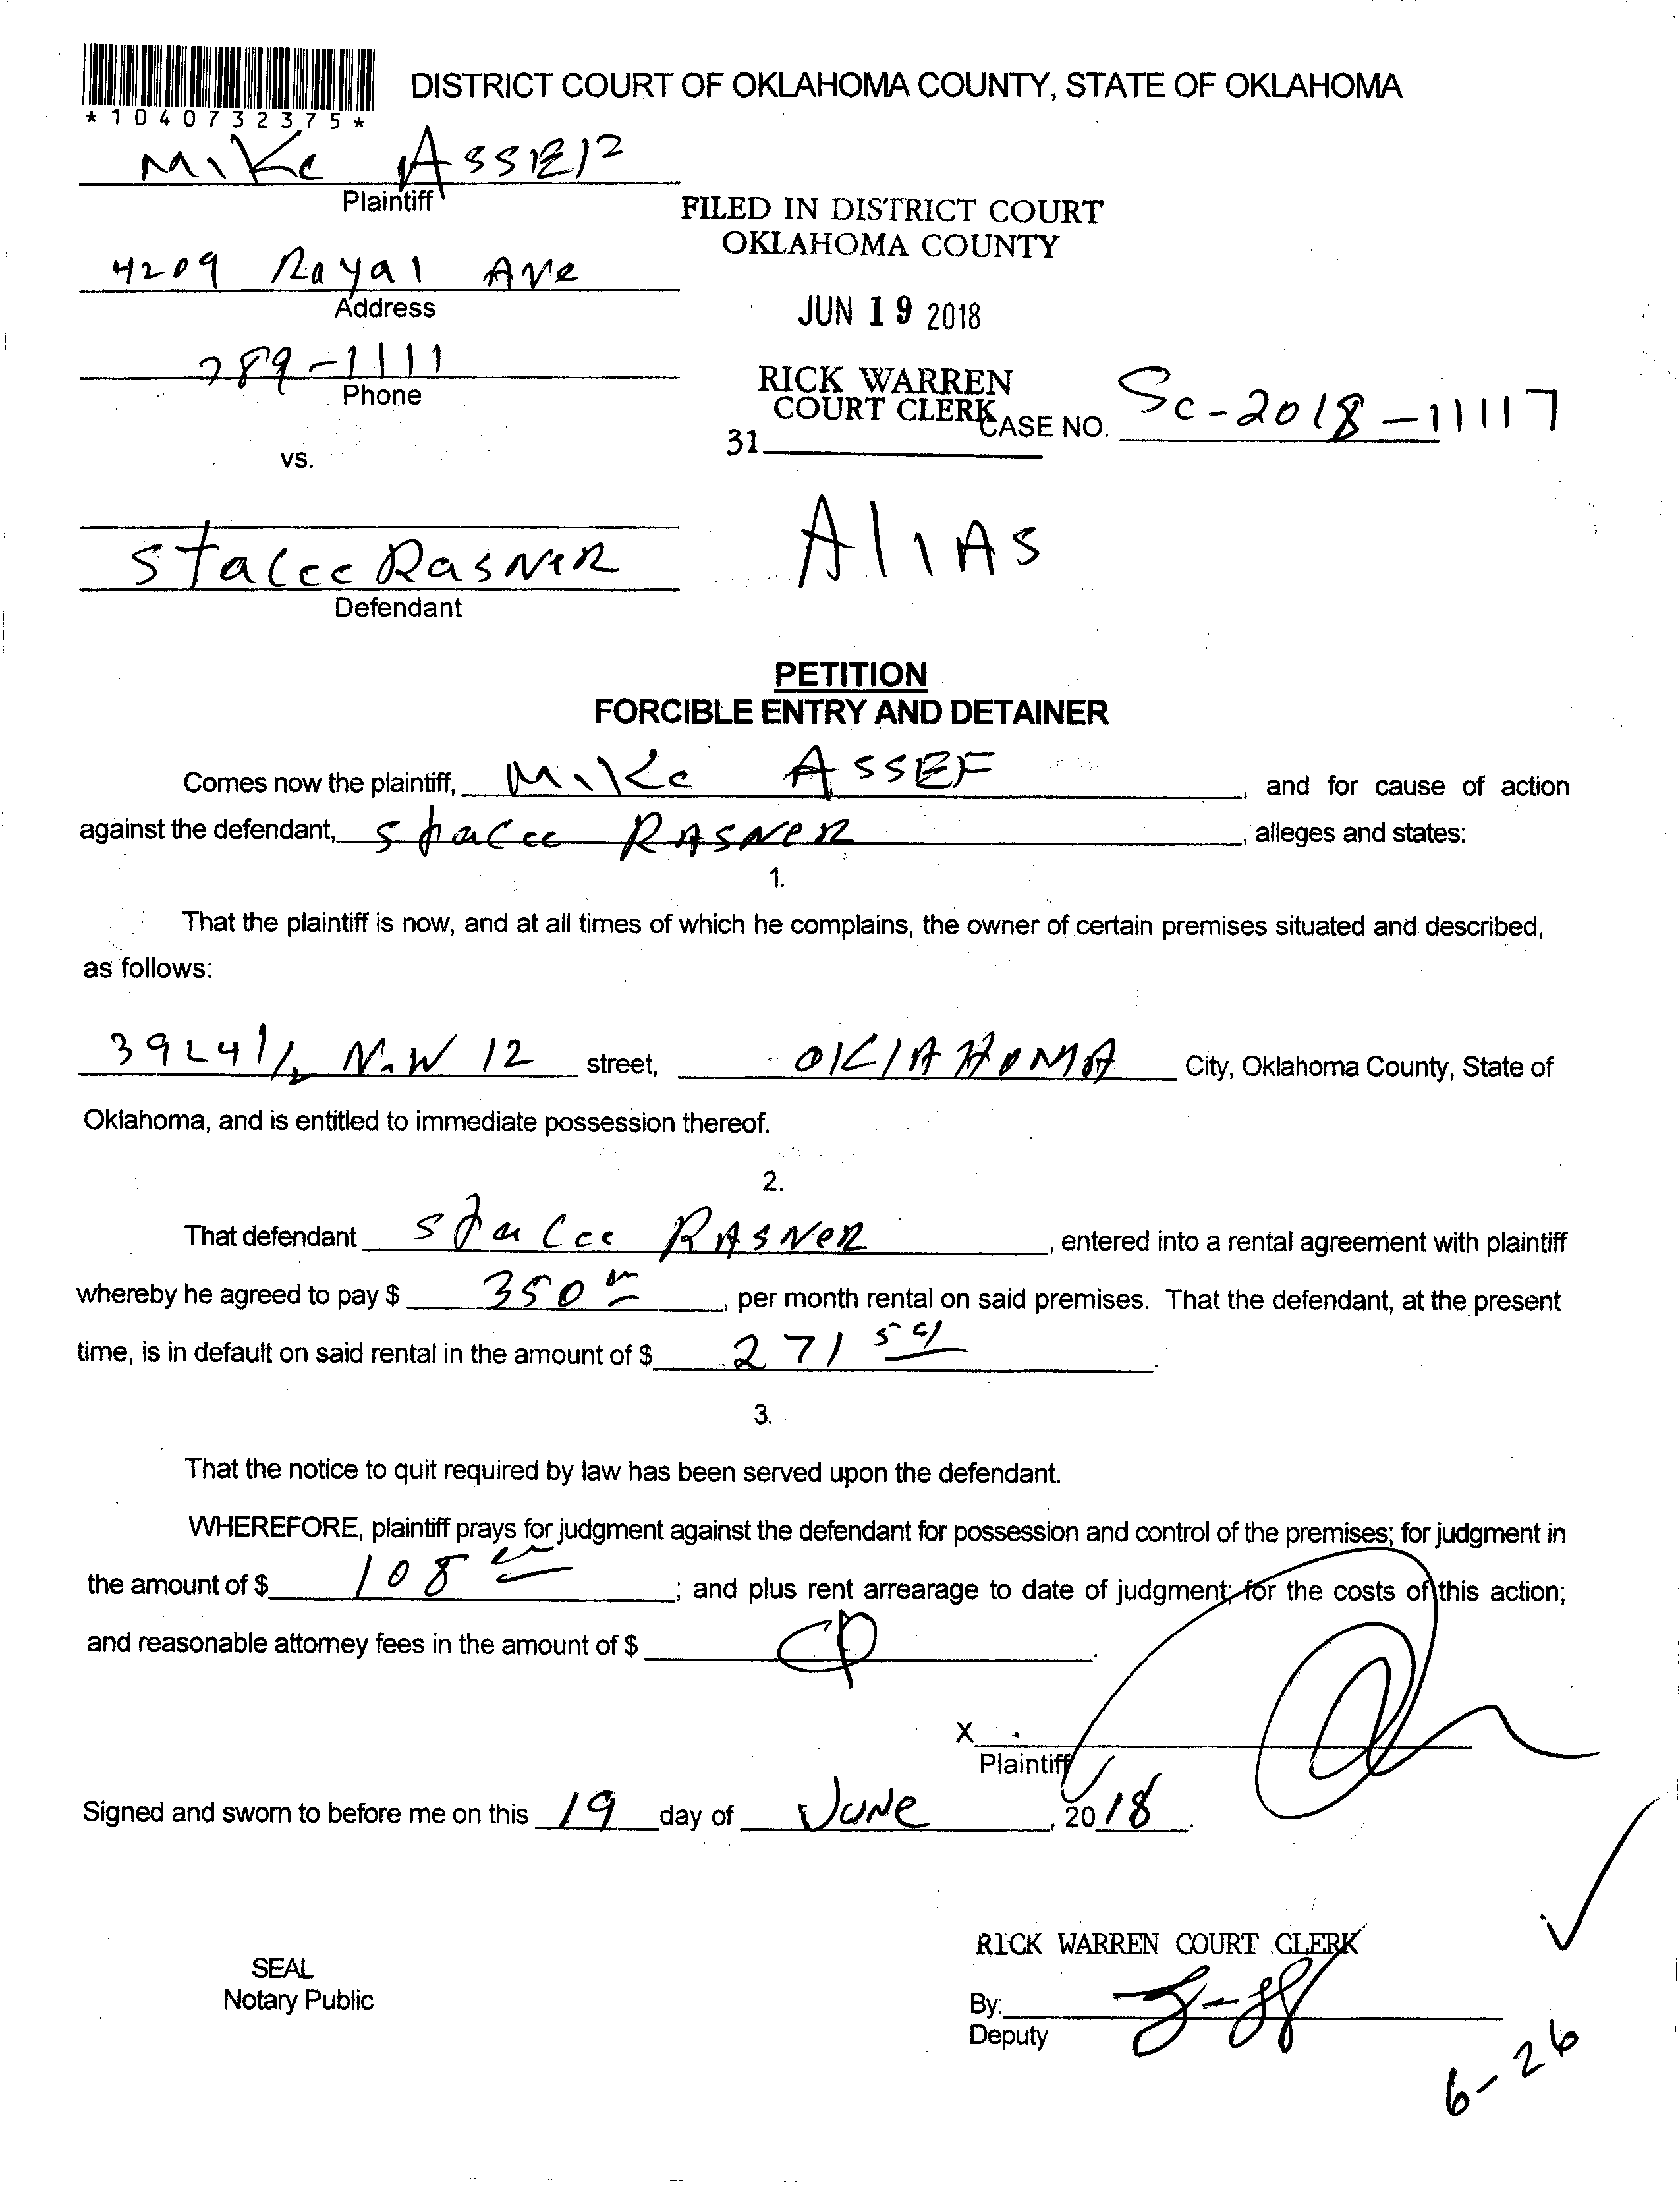 *1040732375*
DISTRICT COURT OF OKLAHOMA COUNTY, STATE OF OKLAHOMA
Mike Assef
Plaintiff
FILED IN DISTRICT COURT
OKLAHOMA COUNTY
4209 Royal Ave
Address
JUN 19 2018
789-1111
Phone
RICK WARREN
COURT CLERK
31
CASE NO. SC-2018-11117
vs.
Alias
Stacee Rasner
Defendant
PETITION
FORCIBLE ENTRY AND DETAINER
Comes now the plaintiff, Mike Assef, and for cause of action
against the defendant, Stacee Rasner, alleges and states:
1.
That the plaintiff is now, and at all times of which he complains, the owner of certain premises situated and described,
as follows:
3924 1/2 N.W 12 street, Oklahoma City, Oklahoma County, State of
Oklahoma, and is entitled to immediate possession thereof.
2.
That defendant Stacee Rasner, entered into a rental agreement with plaintiff
whereby he agreed to pay $ 350, per month rental on said premises. That the defendant, at the present
time, is in default on said rental in the amount of $ 271.
3.
That the notice to quit required by law has been served upon the defendant.
WHEREFORE, plaintiff prays for judgment against the defendant for possession and control of the premises; for judgment in
the amount of $ 108; and plus rent arrearage to date of judgment; for the costs of this action;
and reasonable attorney fees in the amount of $
X
Plaintiff
Signed and sworn to before me on this 19 day of June, 2018.
RICK WARREN COURT CLERK
SEAL
Notary Public
By:
Deputy
6-26